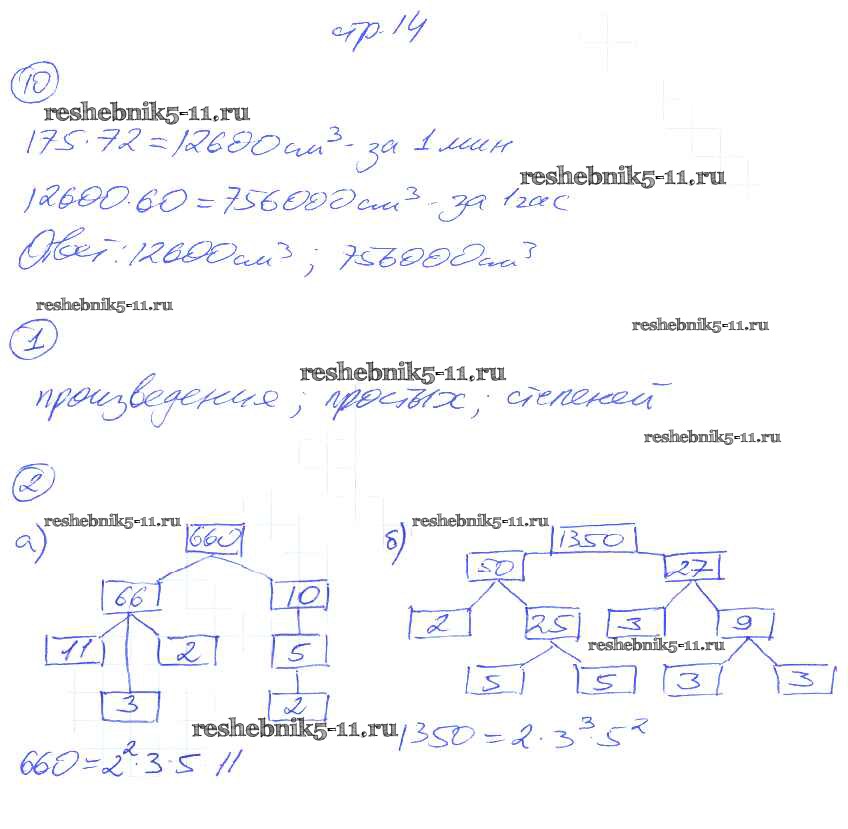 стр. 14
10
reshebnik5-11.ru
175·72=12600см³ - за 1 мин
reshebnik5-11.ru
12600·60=756000см³ - за 1 час
Ответ: 12600см³; 756000см³
reshebnik5-11.ru
reshebnik5-11.ru
1
reshebnik5-11.ru
произведения; простых; степеней
reshebnik5-11.ru
2
reshebnik5-11.ru reshebnik5-11.ru
а) 660
66 10
11 2 5
3 2
б) 1350
50 27
2 25 3 9
reshebnik5-11.ru
5 5 3 3
reshebnik5-11.ru
660=2²·3·5 11
1350=2·3³·5²